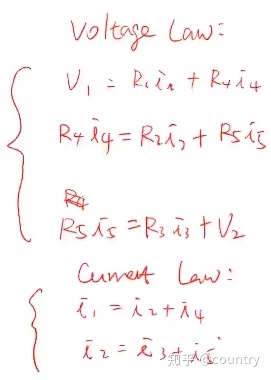 Voltage Law:
V₁ = R₁i₁ + R₄i₄
R₄i₄ = R₂i₂ + R₅i₅
R₄
R₅i₅ = R₃i₃ + V₂
Current Law:
i₁ = i₂ + i₄
i₂ = i₃ + i₅
知乎 @country